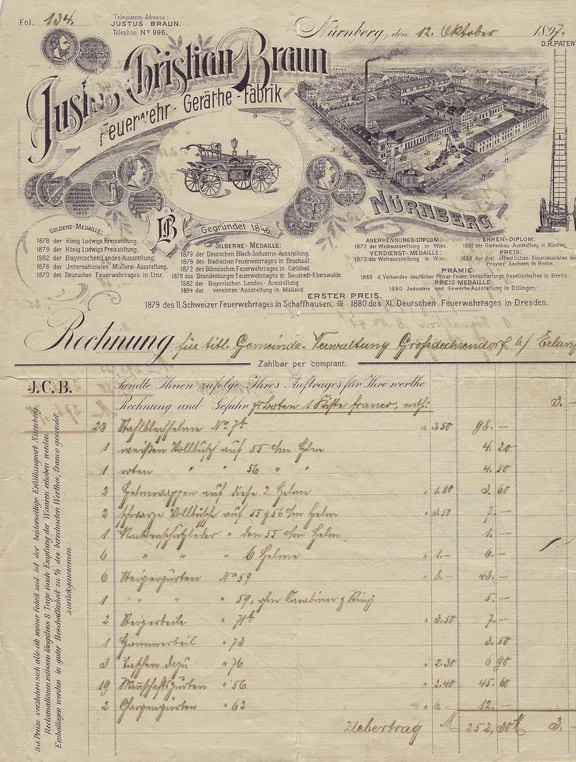 Fol. 134.
Telegramm-Adresse:
JUSTUS BRAUN.
Telephon Nº 996.
Nürnberg, den 12. Oktober 1897.
D.R.PATENT
Justus Christian Braun
Feuerwehr-Geräthe-Fabrik
NÜRNBERG
Gegründet 1846.
GOLDENE-MEDAILLE:
1878 der König Ludwigs Preisstiftung.
1879 der König Ludwigs Preisstiftung.
1882 der Bayerischen Landes-Ausstellung.
1876 der Internationalen Müllerei-Ausstellung.
1870 des Deutschen Feuerwehrtages in Linz.
SILBERNE-MEDAILLE:
1879 der Deutschen Blech-Industrie-Ausstellung.
1876 des Badischen Feuerwehrtages in Bruchsal.
1872 des Böhmischen Feuerwehrtages in Carlsbad.
1878 des Brandenburger Feuerwehrtages in Neustadt-Eberswalde.
1882 der Bayerischen Landes-Ausstellung.
1894 der vereinten Ausstellung in Mailand.
ANERKENNUNGS-DIPLOM:
1873 der Weltausstellung in Wien.
VERDIENST-MEDAILLE:
1873 der Weltausstellung in Wien.
EHREN-DIPLOM:
PREIS:
PRÄMIE
PREIS-MEDAILLE
1890 Industrie und Gewerbe-Ausstellung in Dillingen.
ERSTER PREIS.
1879 des II. Schweizer Feuerwehrtages in Schaffhausen. 1880 des XI. Deutschen Feuerwehrtages in Dresden.
Rechnung für titl. Gemeinde-Verwaltung Grossdechsendorf b/ Erlang
Zahlbar per comptant.
J.C.B.
Sandte Ihnen zufolge Ihres Auftrages für Ihre werthe
Rechnung und Gefahr pr Boten 1 Kiste franco, enth: 3.–
23 Stahlblechhelme Nº 7b a 3.50
1 weißen Vollbusch auf 55 c/m Helm 4. 20
1 roten " " 56 " " 4. 50
2 Helmwappen auf diese 2 Helme " 1.80 3. 60
2 schwarze Vollbüsche auf 55 & 56 c/m Helm " 3.50 7.–
1 Nackenschutzleder " den 55 c/m Helm. 1.–
6 " " " 6 Helme " 1.– 6.–
6 Steigergurten Nº 59 " 8.– 48.–
1 " " 59, ohne Carabiner & Ring 5.–
2 Steigerbeile " 71b " 3.50 7.–
1 Hammerbeil " 73 3. 50
3 Taschen dazu " 76 " 2.30 6 90
19 Mannschaftsgurten " 56 " 2.40 45. 60
2 Chargengurten " 62 " 6.– 12.–
Uebertrag M 252, 30 M 3.–
Die Preise verstehen sich alle ab meiner Fabrik und ist der beiderseitige Erfüllungsort Nürnberg.
Reclamationen müssen längstens 8 Tage nach Empfang der Waaren erhoben werden.
Emballagen werden in guter Beschaffenheit zu ⅔ des berechneten Werthes, franco gesandt,
zurückgenommen.